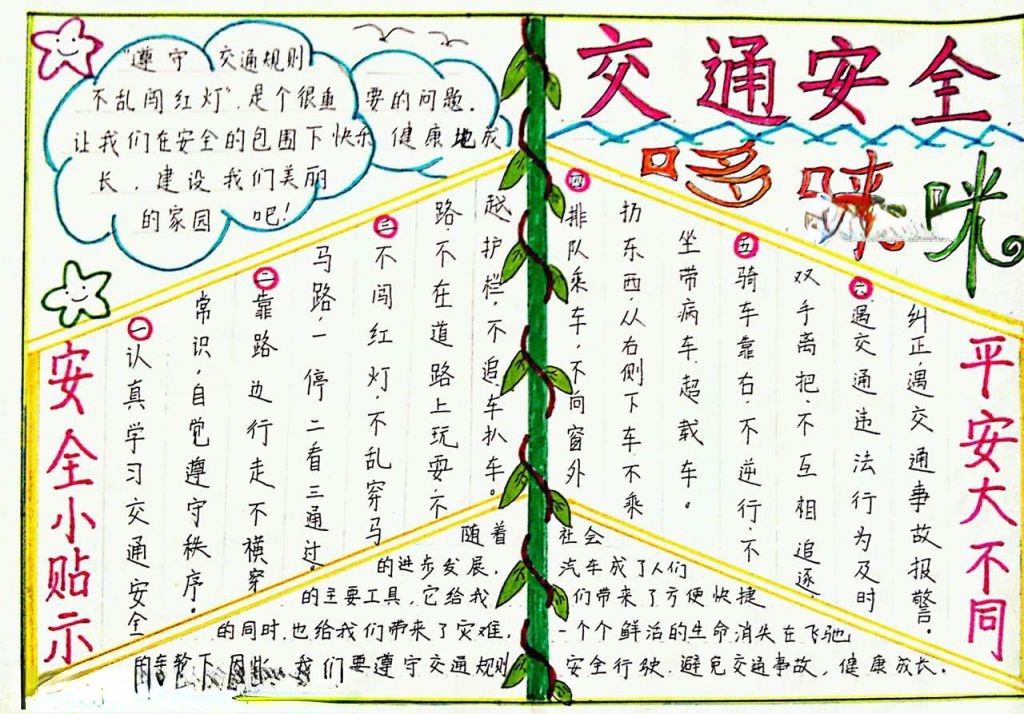 交通安全
哆唻咪
"遵守 交通规则
不乱闯红灯",是个很重 要的问题。
让我们在安全的包围下快乐 健康地成
长,建设我们美丽
的家园 吧!
安全小贴示
一 认真学习交通安全
常识,自觉遵守秩序。
二 靠路边行走不横穿
马路,一停二看三通过。
三 不闯红灯,不乱穿马
路,不在道路上玩耍,不
越护栏,不追车扒车。
四 排队乘车,不向窗外
扔东西,从右侧下车不乘
坐带病车,超载车。
五 骑车靠右,不逆行,不
双手离把,不互相追逐,
六 遇交通违法行为及时
纠正,遇交通事故报警。
平安大不同
随着 社会
的进步发展, 汽车成了人们
的主要工具,它给我 们带来了方便快捷
的同时,也给我们带来了灾难, 一个个鲜活的生命消失在飞驰
的 下 我们要遵守交通规则 安全行驶,避免交通事故,健康成长。